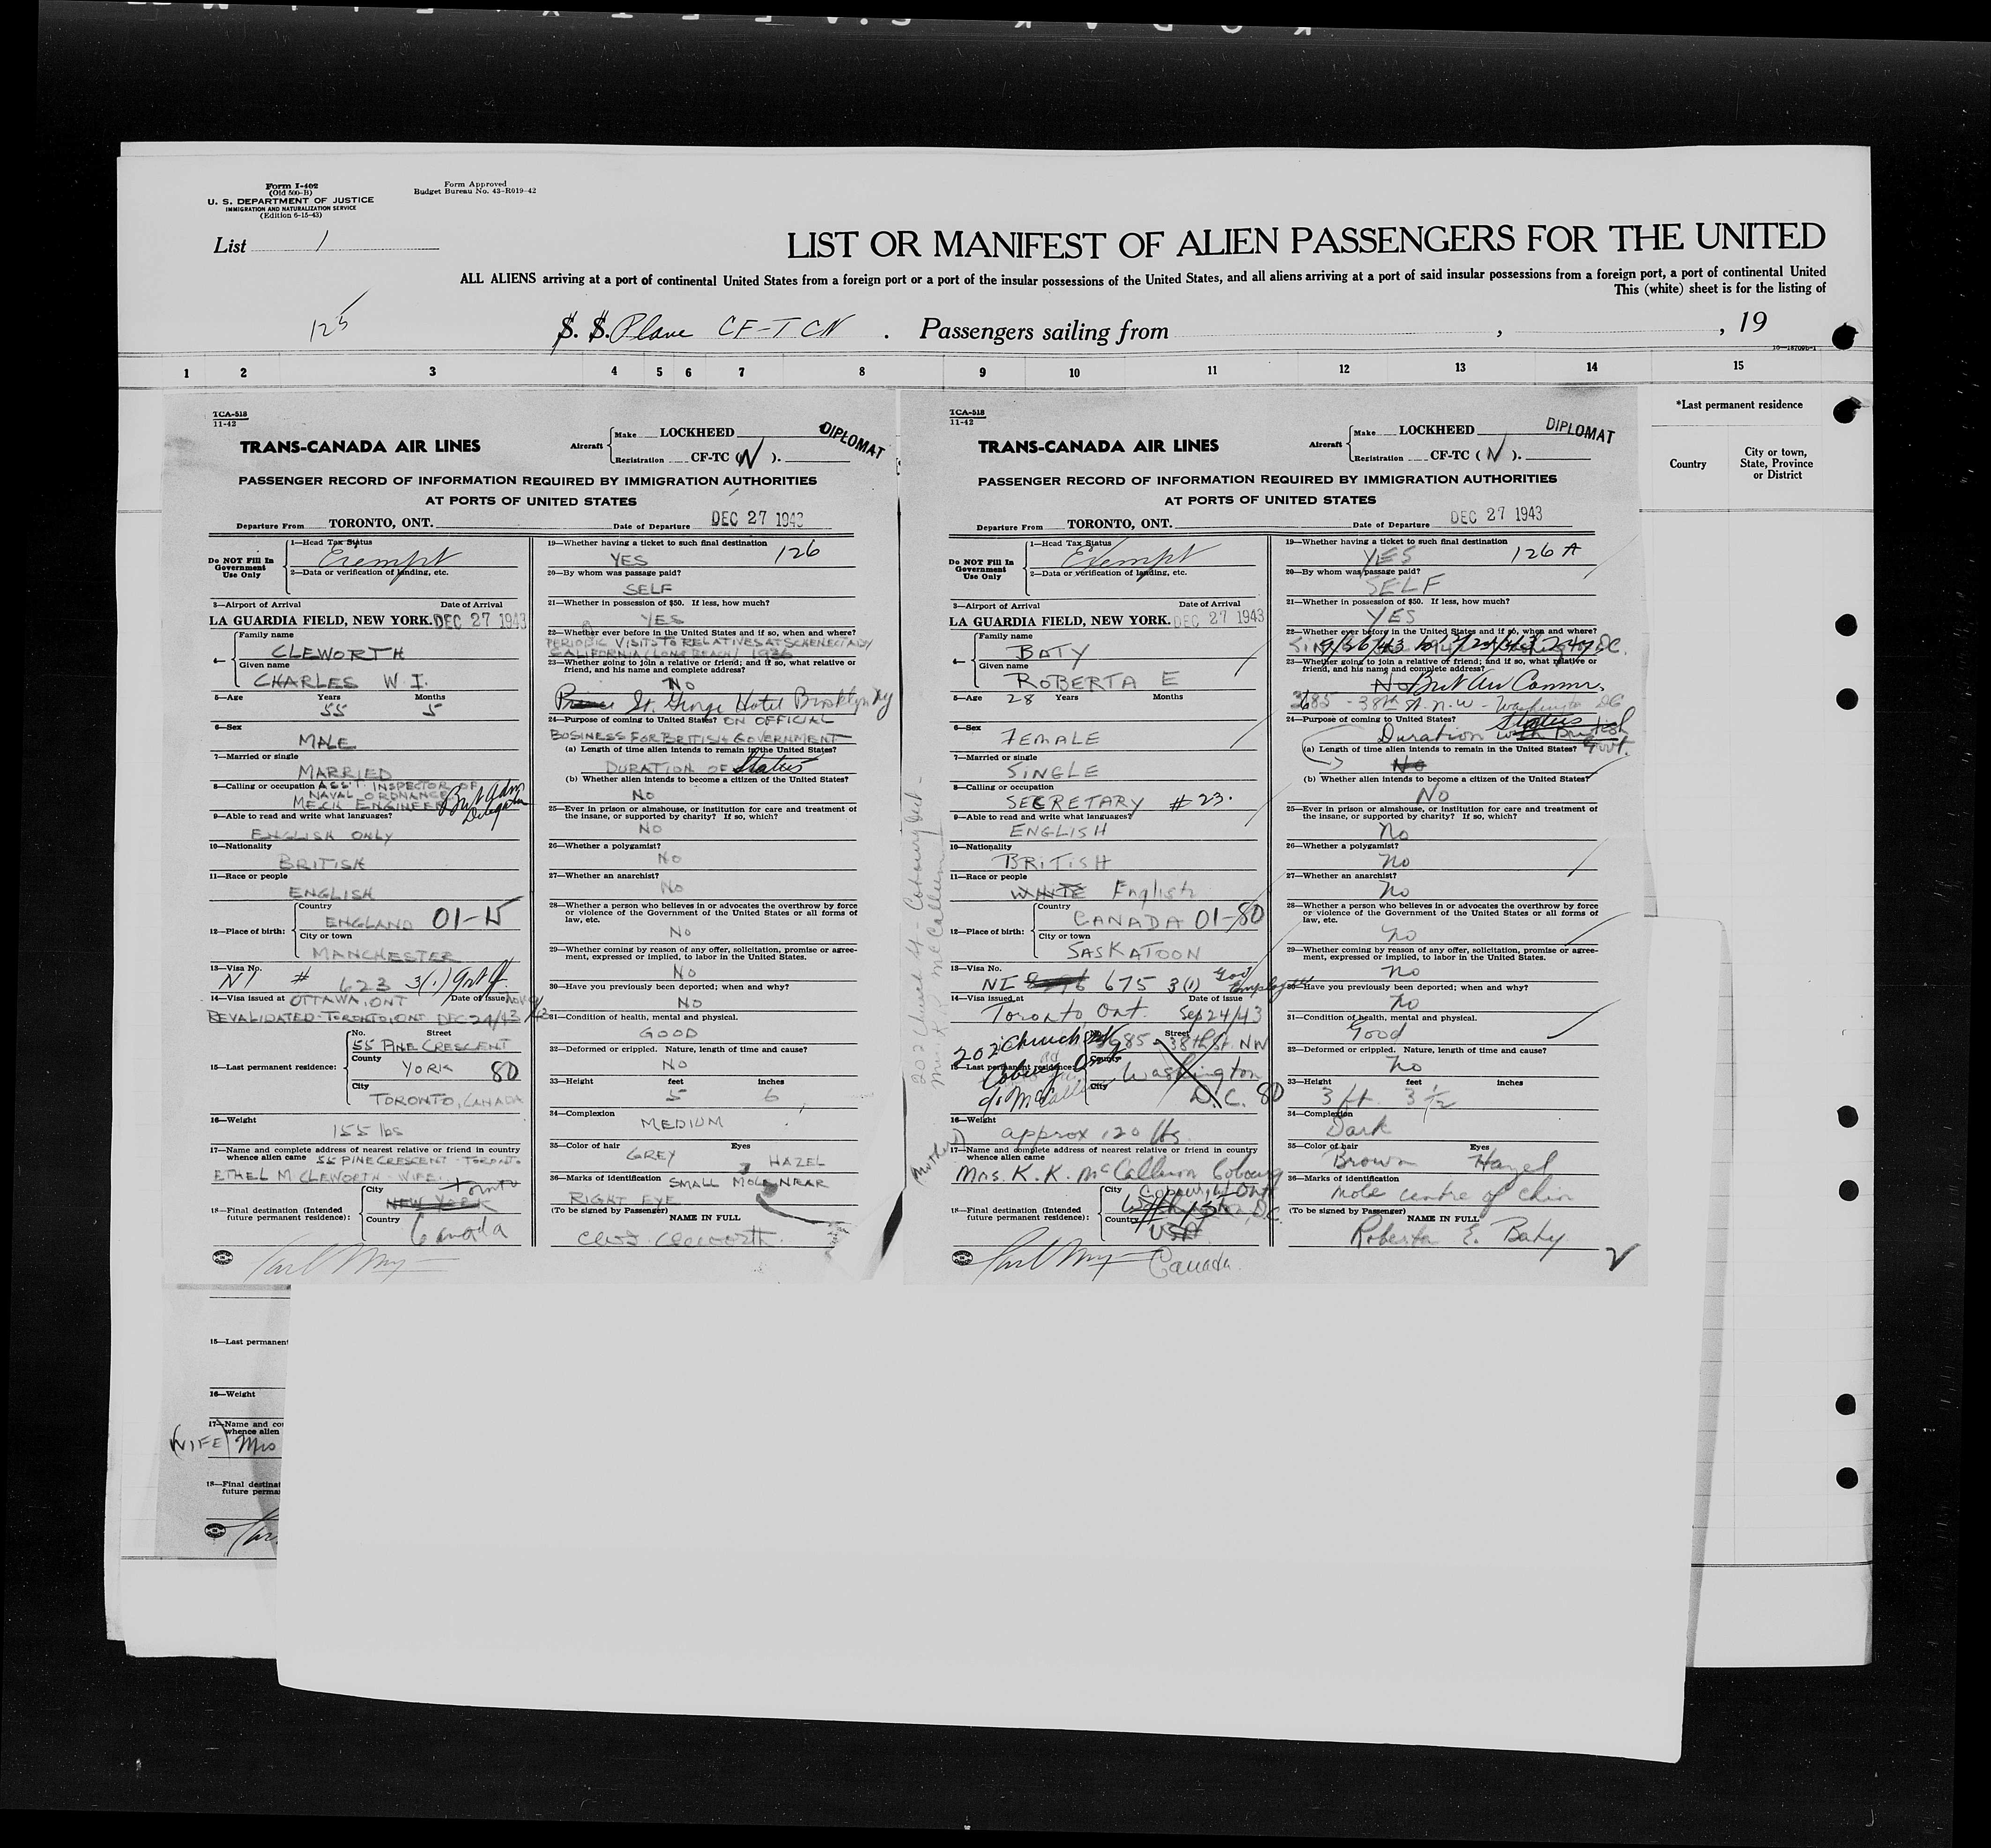 Form I-402
(Old 500-B)
U. S. DEPARTMENT OF JUSTICE
IMMIGRATION AND NATURALIZATION SERVICE
(Edition 6-15-43)
Form Approved
Budget Bureau No. 43-R019-42
List 1
LIST OR MANIFEST OF ALIEN PASSENGERS FOR THE UNITED
ALL ALIENS arriving at a port of continental United States from a foreign port or a port of the insular possessions of the United States, and all aliens arriving at a port of said insular possessions from a foreign port, a port of continental United
This (white) sheet is for the listing of
125
S. S. Plane CF-TCN . Passengers sailing from , , 19
1 2 3 4 5 6 7 8 9 10 11 12 13 14 15
*Last permanent residence
Country
City or town,
State, Province
or District
TCA-518
11-42
TRANS-CANADA AIR LINES
Aircraft
Make LOCKHEED
Registration CF-TC (N).
DIPLOMAT
PASSENGER RECORD OF INFORMATION REQUIRED BY IMMIGRATION AUTHORITIES
AT PORTS OF UNITED STATES
Departure From TORONTO, ONT. Date of Departure DEC 27 1943
Do NOT Fill In
Government
Use Only
1—Head Tax Status
Exempt
2—Data or verification of landing, etc.
3—Airport of Arrival Date of Arrival
LA GUARDIA FIELD, NEW YORK. DEC 27 1943
4—
Family name
CLEWORTH
Given name
CHARLES W I.
5—Age Years Months
55 5
6—Sex
MALE
7—Married or single
MARRIED
8—Calling or occupation ASS'T. INSPECTOR OF
NAVAL ORDNANCE
MECH ENGINEER
9—Able to read and write what languages?
ENGLISH ONLY
10—Nationality
BRITISH
11—Race or people
ENGLISH
12—Place of birth:
Country
ENGLAND 01-15
City or town
MANCHESTER
13—Visa No.
NI # 623 3(1)
14—Visa issued at OTTAWA, ONT Date of issue
REVALIDATED-TORONTO, ONT DEC 24/43
15—Last permanent residence:
No. Street
55 PINE CRESCENT
County
YORK 80
City
TORONTO, CANADA
16—Weight
155 lbs
17—Name and complete address of nearest relative or friend in country
whence alien came 55 PINE CRESCENT - TORONTO
ETHEL M CLEWORTH - WIFE.
18—Final destination (Intended
future permanent residence):
City
Toronto
NEW YORK
Country
Canada
19—Whether having a ticket to such final destination
YES 126
20—By whom was passage paid?
SELF
21—Whether in possession of $50. If less, how much?
YES
22—Whether ever before in the United States and if so, when and where?
PERIODIC VISITS TO RELATIVES AT SCHENECTADY
CALIFORNIA (LONG BEACH) 1936
23—Whether going to join a relative or friend; and if so, what relative or
friend, and his name and complete address?
NO
St. George Hotel Brooklyn NY
24—Purpose of coming to United States? ON OFFICIAL
BUSINESS FOR BRITISH GOVERNMENT
(a) Length of time alien intends to remain in the United States?
DURATION OF Status
(b) Whether alien intends to become a citizen of the United States?
NO
25—Ever in prison or almshouse, or institution for care and treatment of
the insane, or supported by charity? If so, which?
NO
26—Whether a polygamist?
NO
27—Whether an anarchist?
NO
28—Whether a person who believes in or advocates the overthrow by force
or violence of the Government of the United States or all forms of
law, etc.
NO
29—Whether coming by reason of any offer, solicitation, promise or agree-
ment, expressed or implied, to labor in the United States.
NO
30—Have you previously been deported; when and why?
NO
31—Condition of health, mental and physical.
GOOD
32—Deformed or crippled. Nature, length of time and cause?
NO
33—Height feet inches
5 6
34—Complexion
MEDIUM
35—Color of hair Eyes
GREY HAZEL
36—Marks of identification SMALL MOLE NEAR
RIGHT EYE
(To be signed by Passenger)
NAME IN FULL
TCA-518
11-42
TRANS-CANADA AIR LINES
Aircraft
Make LOCKHEED
Registration CF-TC (N).
DIPLOMAT
PASSENGER RECORD OF INFORMATION REQUIRED BY IMMIGRATION AUTHORITIES
AT PORTS OF UNITED STATES
Departure From TORONTO, ONT. Date of Departure DEC 27 1943
Do NOT Fill In
Government
Use Only
1—Head Tax Status
Exempt
2—Data or verification of landing, etc.
3—Airport of Arrival Date of Arrival
LA GUARDIA FIELD, NEW YORK. DEC 27 1943
4—
Family name
BATY
Given name
ROBERTA E
5—Age 28 Years Months
6—Sex
FEMALE
7—Married or single
SINGLE
8—Calling or occupation
SECRETARY #23.
9—Able to read and write what languages?
ENGLISH
10—Nationality
BRITISH
11—Race or people
WHITE English
12—Place of birth:
Country
CANADA 01-80
City or town
SASKATOON
13—Visa No.
NI 675 3(1) Gov Employee
14—Visa issued at Date of issue
Toronto Ont. Sep 24/43
202 Church St
Cobourg Ont
15—Last permanent residence:
Street
3685 - 38th St. NW
County
Washington
City
D.C. 80
16—Weight
approx 120 lbs.
17—Name and complete address of nearest relative or friend in country
whence alien came
Mrs. K. K. McCallum Cobourg
18—Final destination (Intended
future permanent residence):
City Cobourg Ont
Country
USA
Canada
19—Whether having a ticket to such final destination
YES 126 A
20—By whom was passage paid?
SELF
21—Whether in possession of $50. If less, how much?
YES
22—Whether ever before in the United States and if so, when and where?
23—Whether going to join a relative or friend; and if so, what relative or
friend, and his name and complete address?
No Brit Air Comm.
3685 - 38th St. N.W - Washington DC
24—Purpose of coming to United States? Status
Duration with British Govt.
(a) Length of time alien intends to remain in the United States?
No
(b) Whether alien intends to become a citizen of the United States?
No
25—Ever in prison or almshouse, or institution for care and treatment of
the insane, or supported by charity? If so, which?
no
26—Whether a polygamist?
no
27—Whether an anarchist?
no
28—Whether a person who believes in or advocates the overthrow by force
or violence of the Government of the United States or all forms of
law, etc.
no
29—Whether coming by reason of any offer, solicitation, promise or agree-
ment, expressed or implied, to labor in the United States.
no
30—Have you previously been deported; when and why?
no
31—Condition of health, mental and physical.
Good
32—Deformed or crippled. Nature, length of time and cause?
no
33—Height feet inches
3 ft. 3 1/2
34—Complexion
Dark
35—Color of hair Eyes
Brown Hazel
36—Marks of identification
mole centre of chin
(To be signed by Passenger)
NAME IN FULL
Roberta E. Baty
15—Last permanent
16—Weight
17—Name and co
whence alien
(WIFE) Mrs
18—Final destinat
future perma